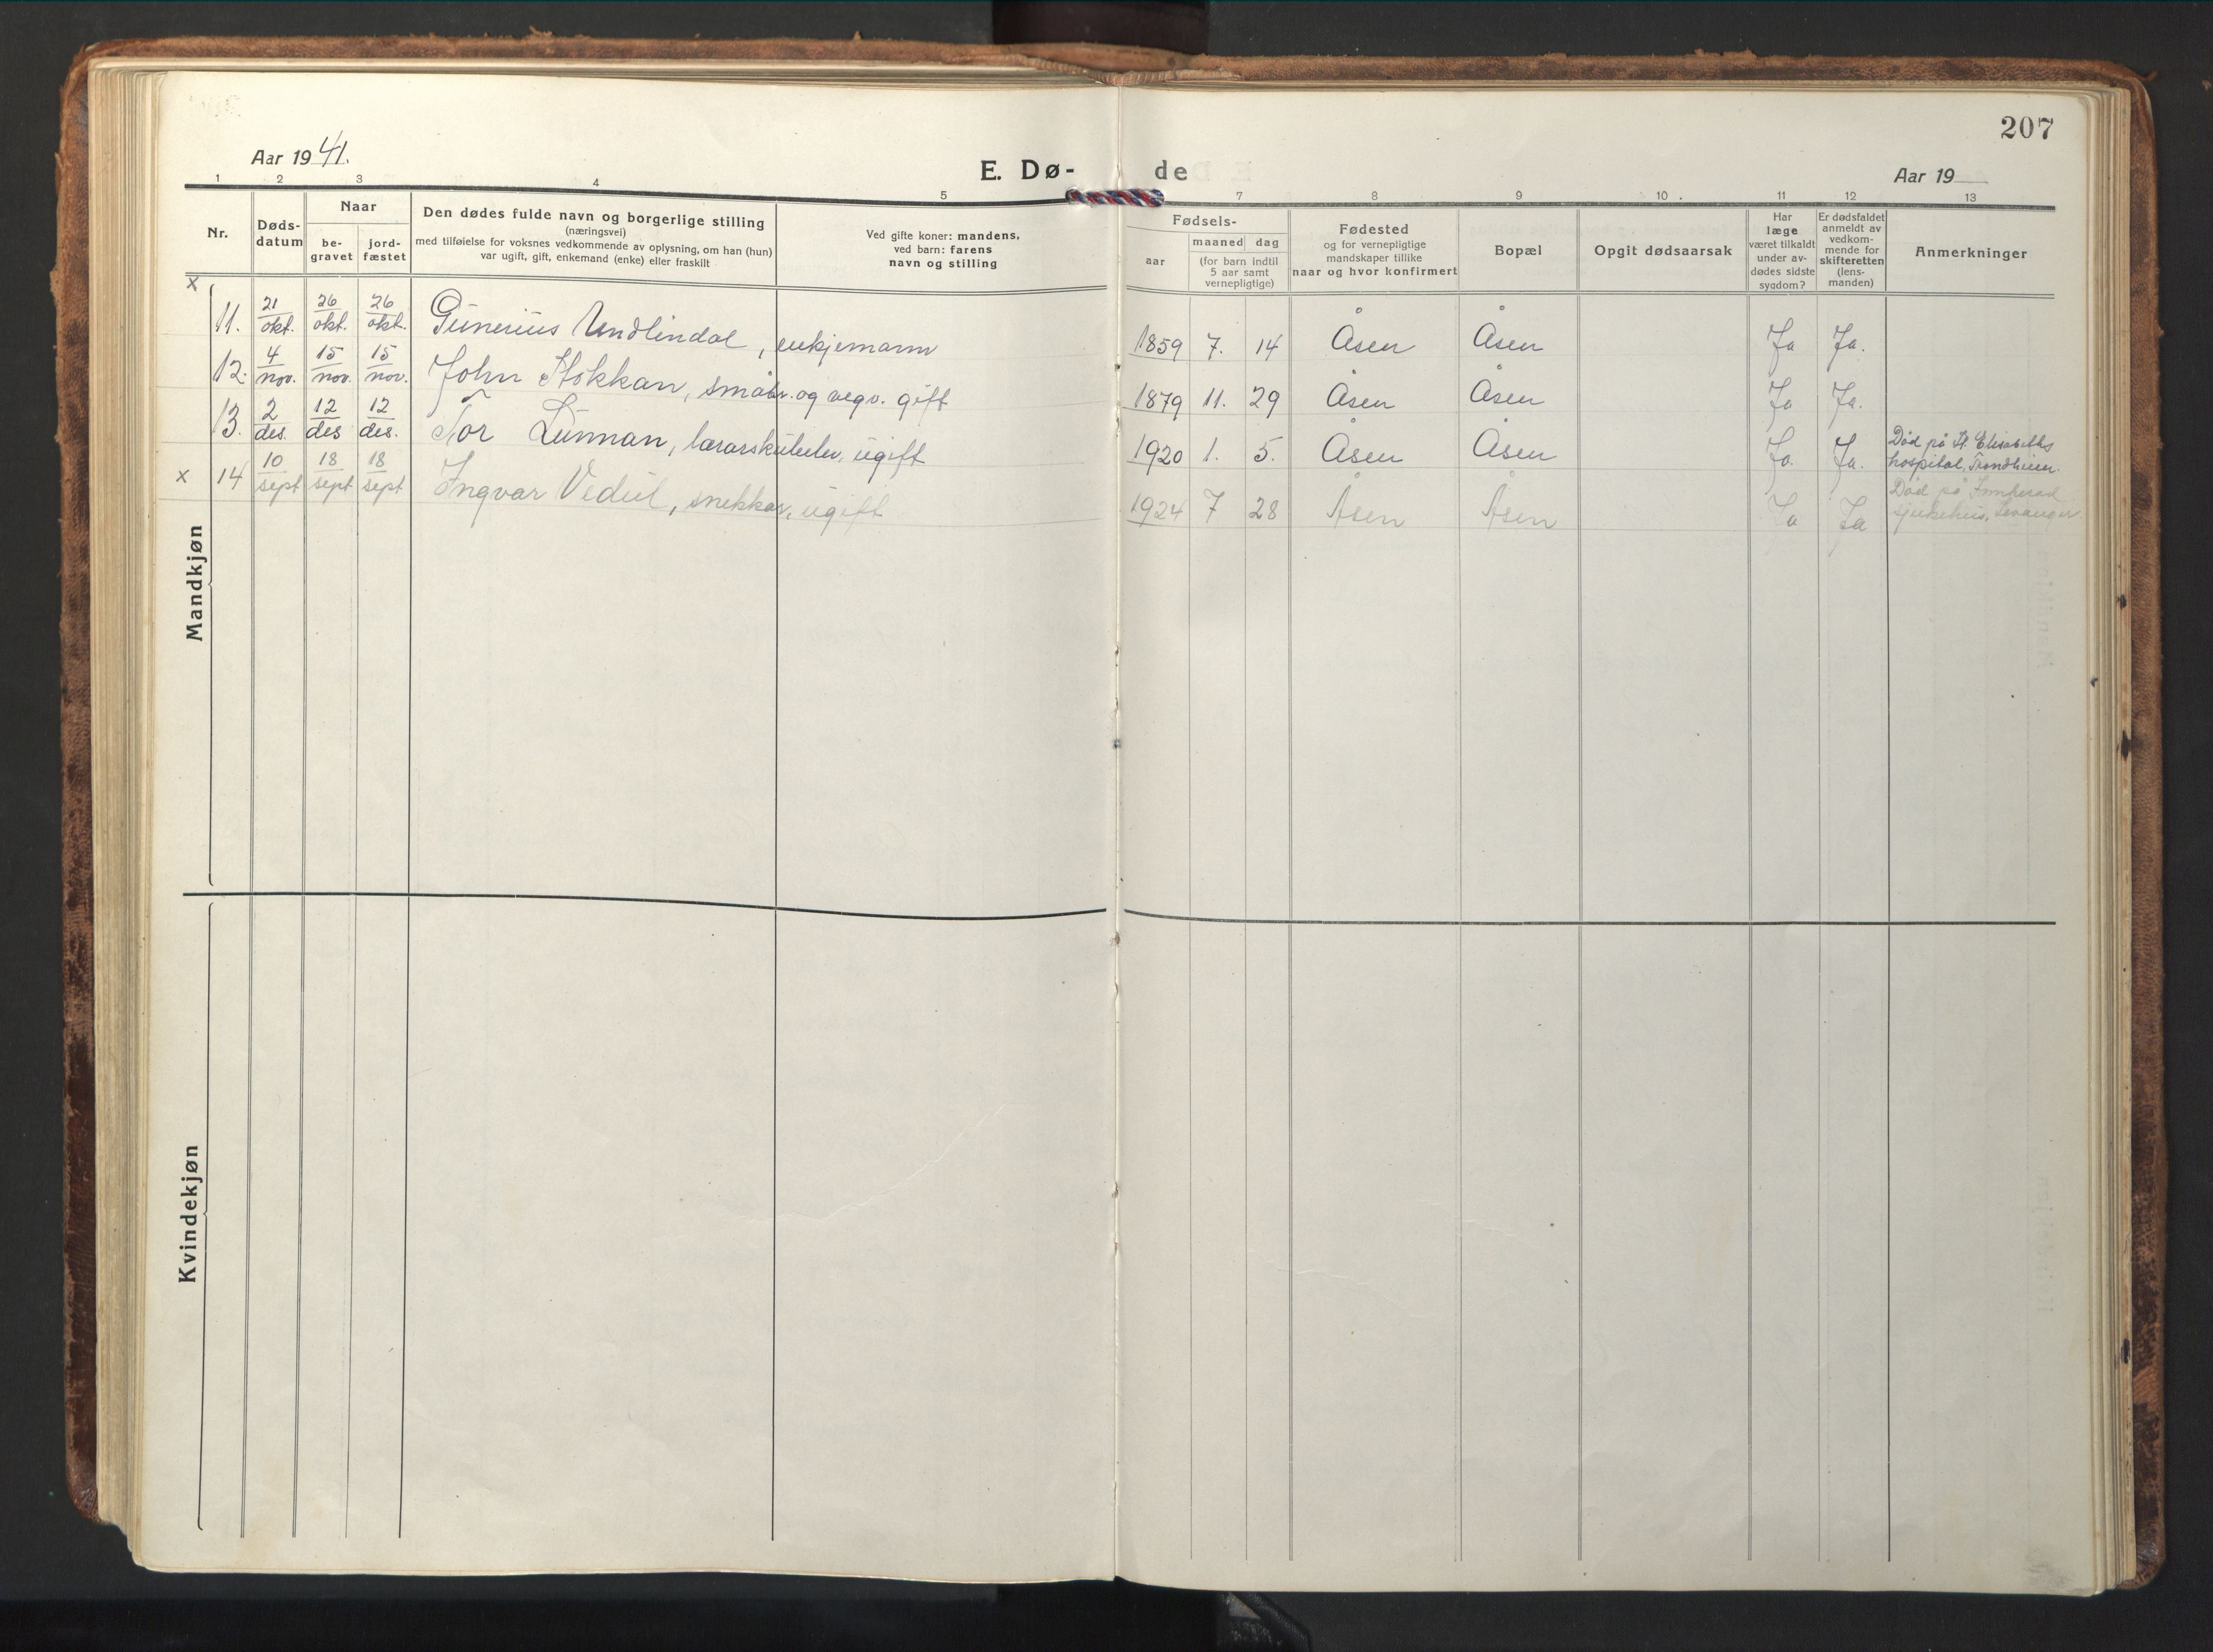 207
Aar 1941.
E. Dø- de
Aar 19
1 2 3 4 5 7 8 9 10 11 12 13
Nr.
Døds-
datum
Naar
be-
gravet
jord-
fæstet
Den dødes fulde navn og borgerlige stilling
(næringsvei)
med tilføielse for voksnes vedkommende av oplysning, om han (hun)
var ugift, gift, enkemand (enke) eller fraskilt
Ved gifte koner: mandens,
ved barn: farens
navn og stilling
Fødsels-
aar
maaned dag
(for barn indtil
5 aar samt
vernepligtige)
Fødested
og for vernepligtige
mandskaper tillike
naar og hvor konfirmert
Bopæl
Opgit dødsaarsak
Har
læge
været tilkaldt
under av-
dødes sidste
sygdom?
Er dødsfaldet
anmeldt av
vedkom-
mende for
skifteretten
(lens-
manden)
Anmerkninger
x
Mandkjøn
11. 21/okt. 26/okt. 26/okt. Gunerius Undlindal, enkjemann 1859 7. 14 Åsen Åsen Ja Ja.
12. 4/nov. 15/nov. 15/nov. John Stokkan, småbr. og vegv. gift 1879 11. 29 Åsen Åsen Ja Ja.
13. 2/des. 12/des 12/des. Tor Lunnan, lærarskuleelev, ugift 1920 1. 5. Åsen Åsen Ja. Ja. Død på St. Elisabeths
hospital, Trondheim.
x 14 10/sept 18/sept 18/sept Ingvar Vedul, snekkar, ugift 1924 7 28 Åsen Åsen Ja Ja Død på Innherad
sjukehus, Levanger
Kvindekjøn